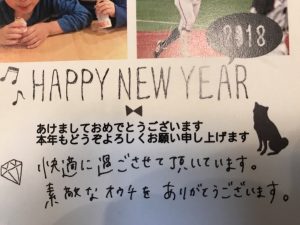 2018
HAPPY NEW YEAR
あけましておめでとうございます
本年もどうぞよろしくお願い申し上げます
快適に過ごさせて頂いています。
素敵なオウチをありがとうございます。